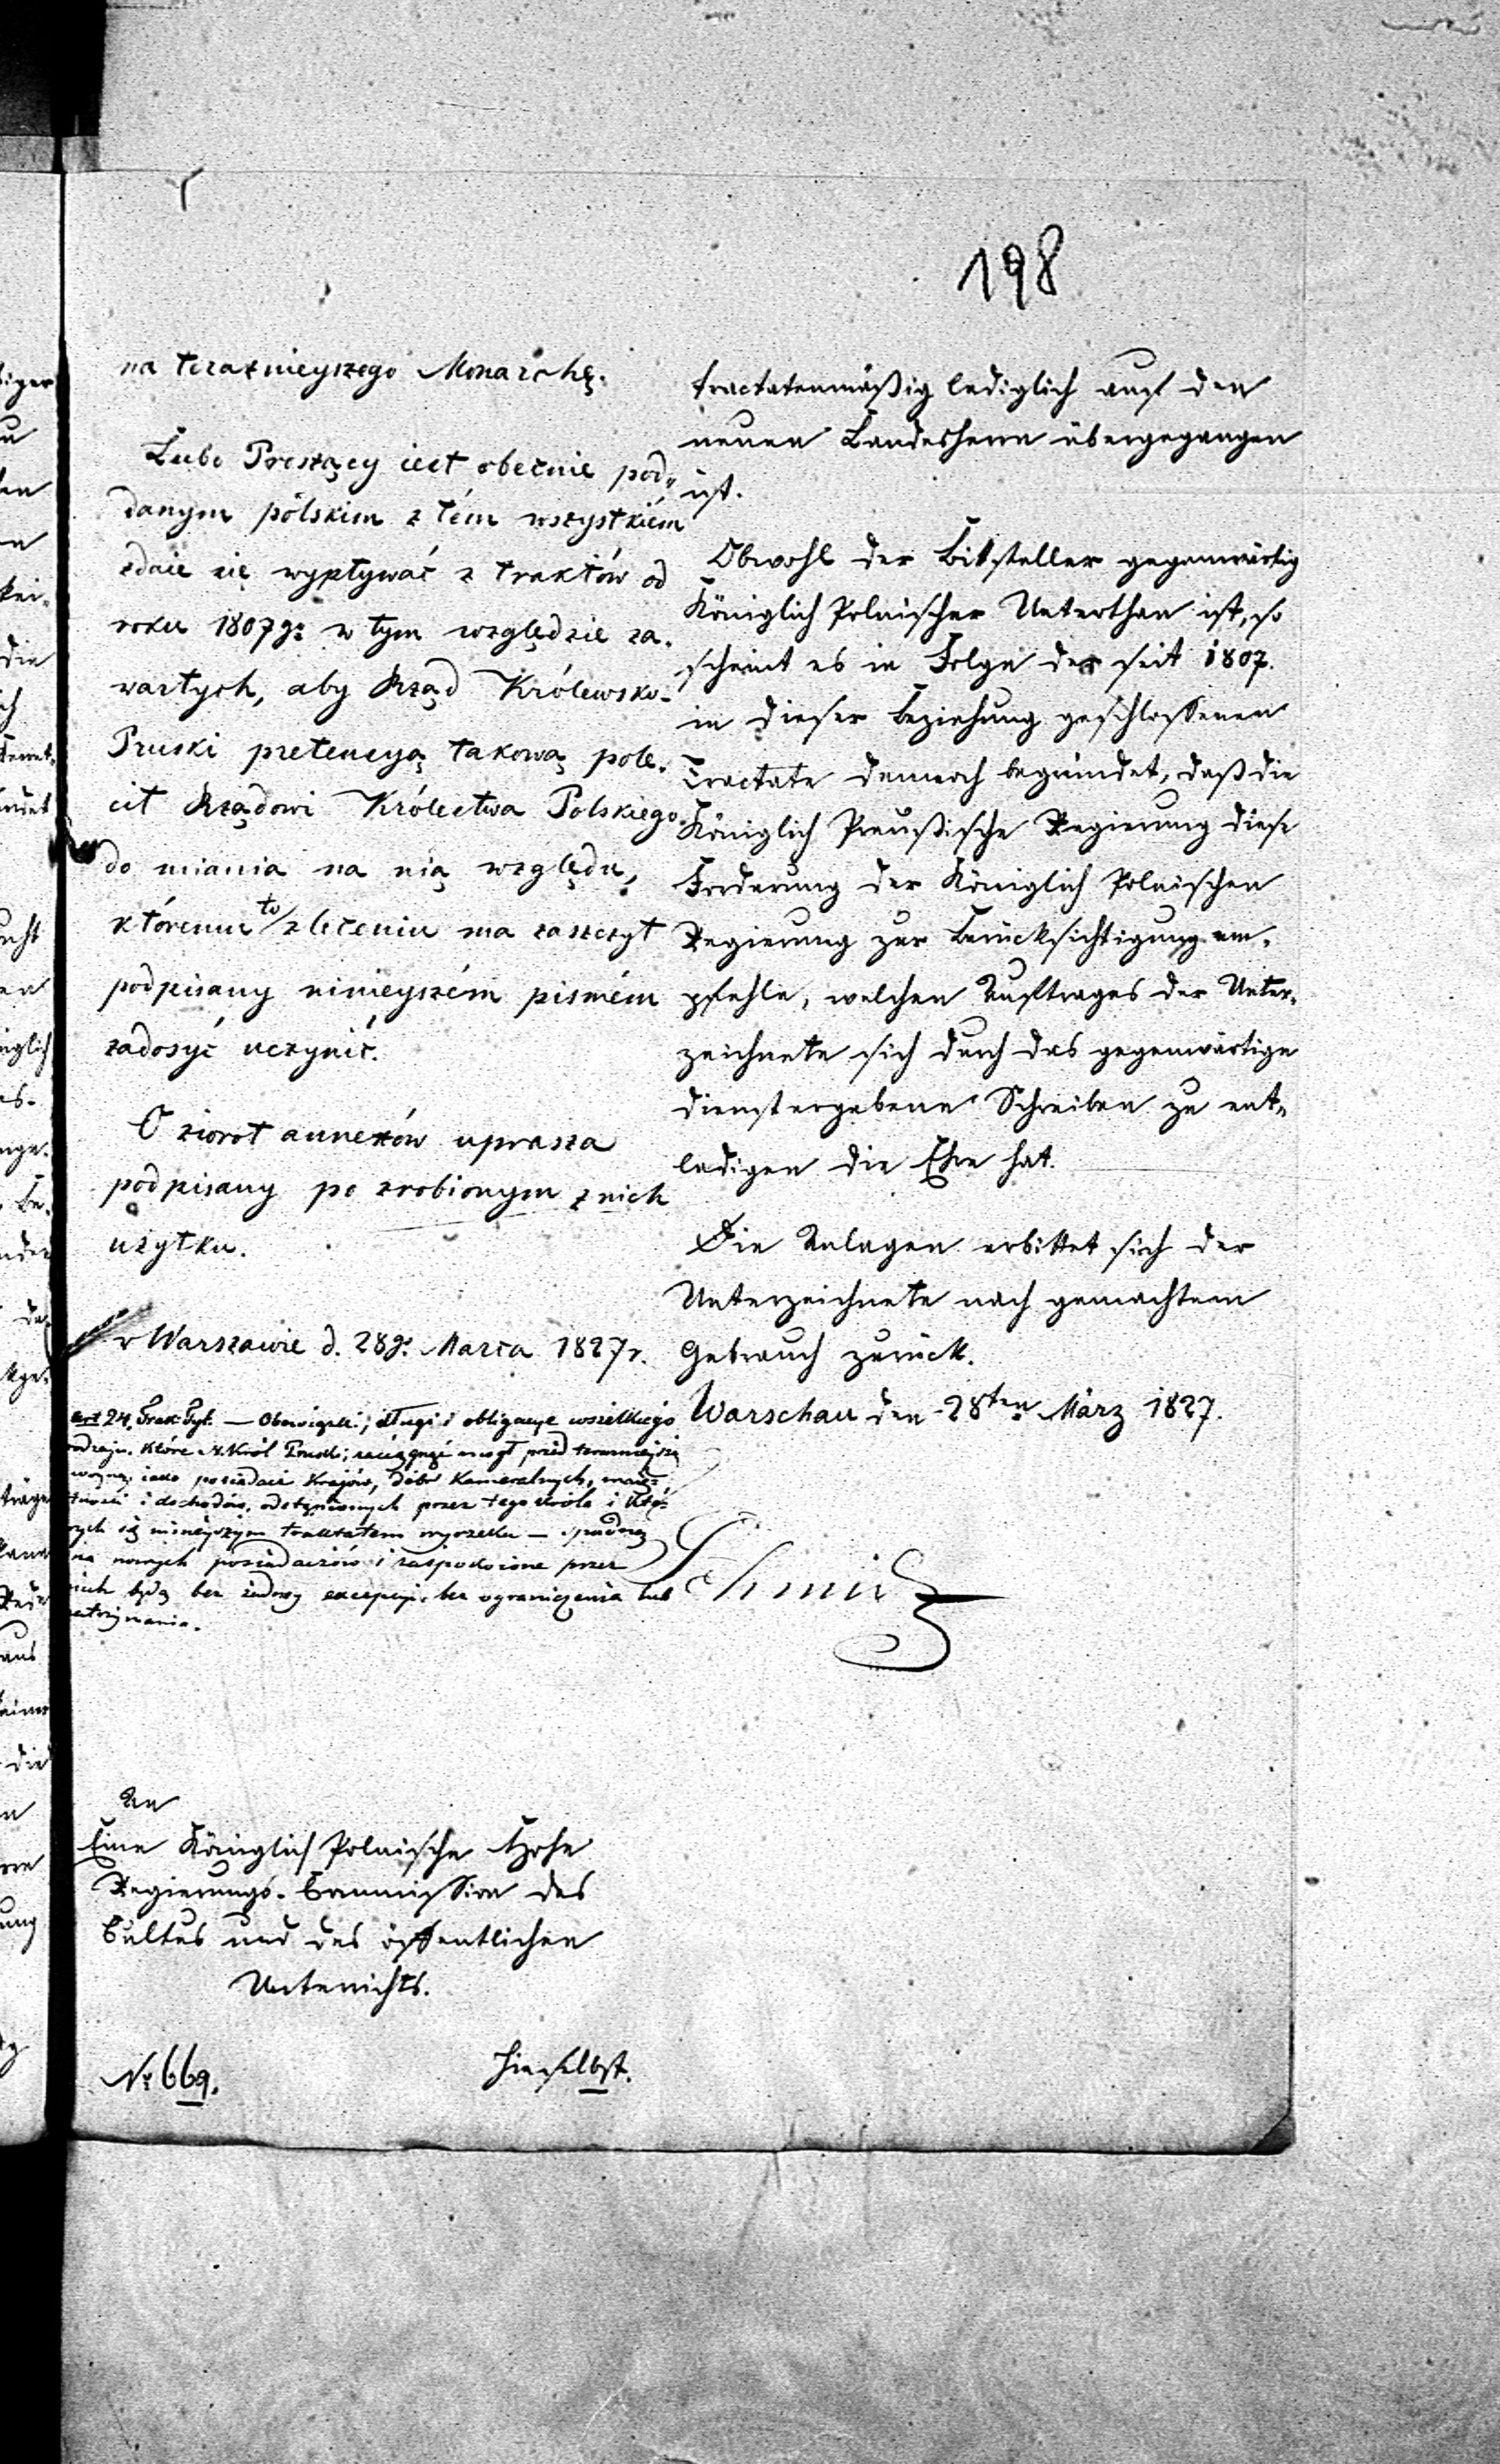 198
na teraznieyszego Monarchę.
Lubo Proszący iest obecnie pod„
danym pólskim z tém wszystkiém
zdaie się wypływać z traktów od
roku 1807go w tym względzie za„
wartych, aby Rząd Królewsko-
Pruski pretencyą takową pole„
cił Rządowi Królestwa Polskiego
do miania na nią względu,
któremu to zleceniu ma zaszczyt
podpisany ninieyszém pismém
zadosyć uczynić.
O zwrot annexów uprasza
podpisany po zrobionym z nich
użytku.
w Warszawie d. 28go Marca 1827r.
art 24. Trak: Tyl: — Obowiązki, długi i obligacye wszelkiego
rodzaju, które N. Król Pruski, zaciągnąć mógł przed teraznieyszą
woyną, iako posiadacz Krajów, dóbr Kameralnych, maię-
tności i dochodów, odstąpionych przez tego Króla i któ-
rych się ninieyszym traktatem wyrzeka — spadną
na nowych posiadaczów i zaspokoione przez
nich będą bez żadney excepcyi, bez ograniczenia lub
zatrzymania.
tractatenmäßig lediglich auf den
neuen Landesherrn übergegangen
ist.
Obwohl der Bittsteller gegenwärtig
Königlich Polnischer Unterthan ist, so
scheint es in Folge der seit 1807.
in dieser Beziehung geschlossenen
Tractate dennoch begründet, daß die
Königlich Preußische Regierung diese
Forderung der Königlich Polnischen
Regierung zur Berücksichtigung em„
pfehle, welchen Auftrages der Unter„
zeichnete sich durch das gegenwärtige
dienstergebene Schreiben zu ent„
ledigen die Ehre hat.
Die Anlagen erbittet sich der
Unterzeichnete nach gemachtem
Gebrauch zurück.
Warschau den 28ten März 1827.
Schmidt
An
Eine Königlich Polnische Hohe
Regierungs-Commission des
Cultus und des öffentlichen
Unterrichts.
Hieselbst.
No 669.